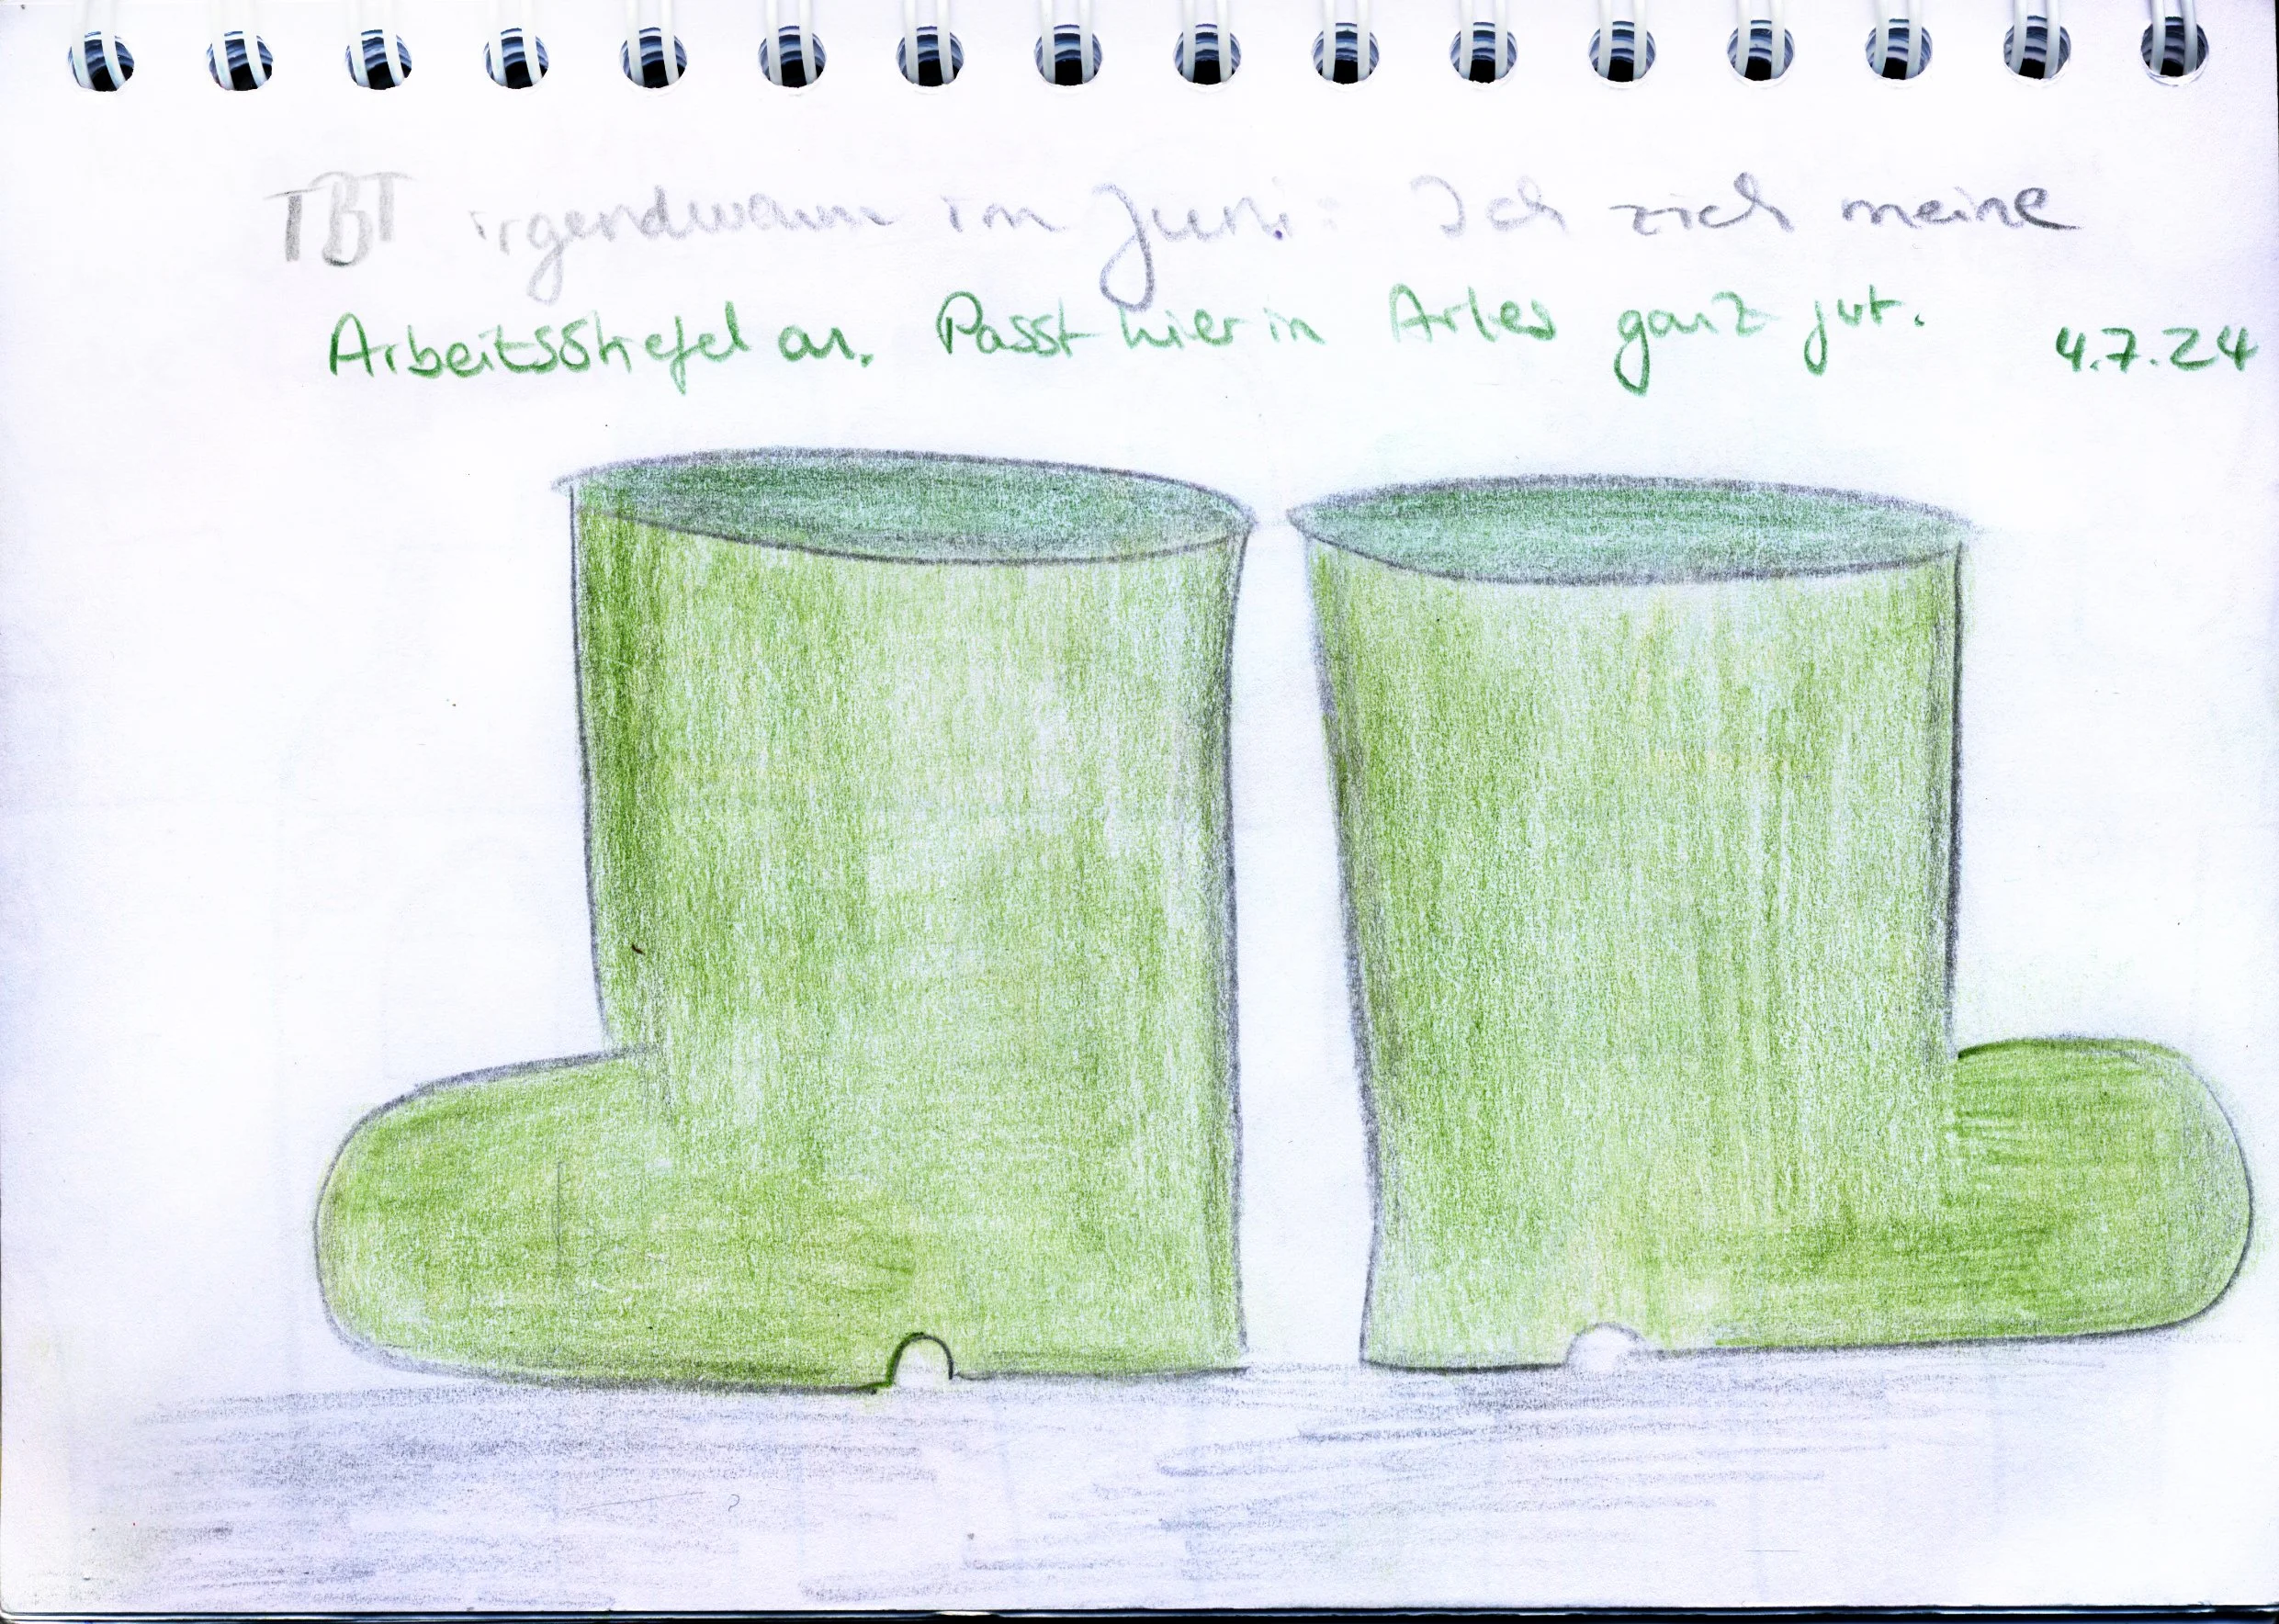 TBT irgendwann im Juni: Ich zieh meine
Arbeitsstiefel an. Passt hier in Arles ganz jut. 4.7.24